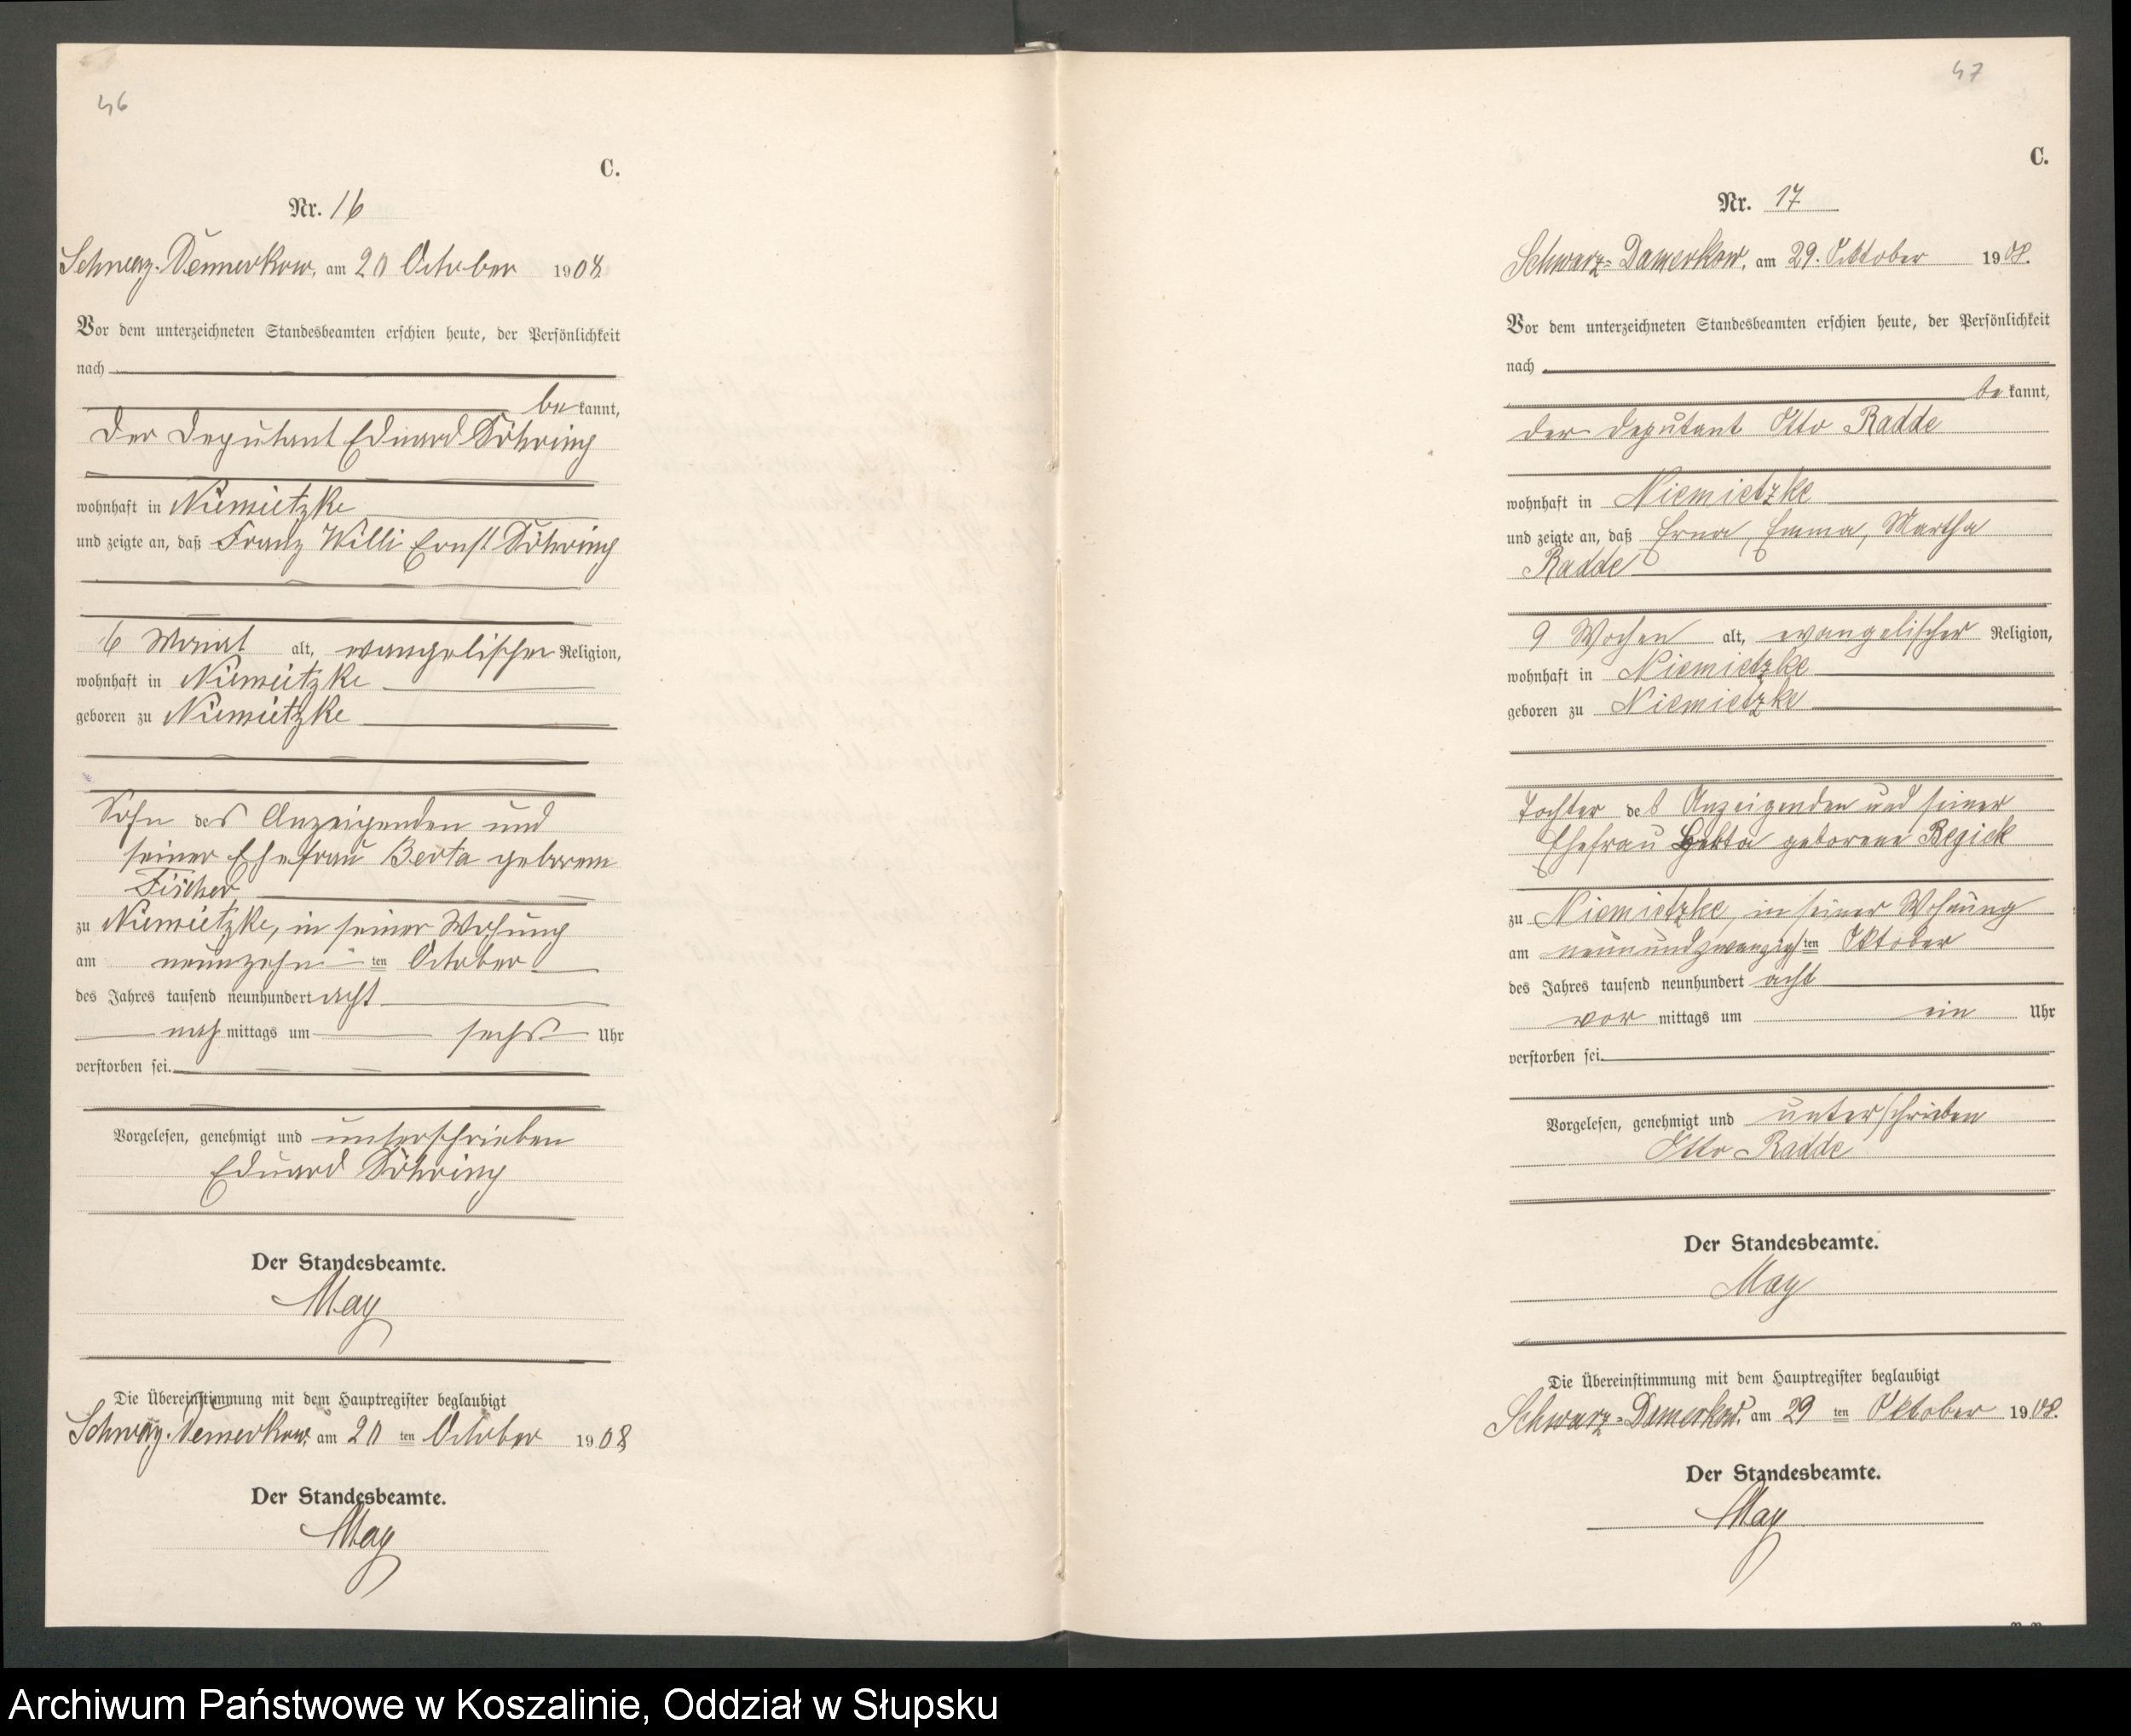 46
C.
Nr. 16
Schwarz-Damerkow, am 20 October 1908
Vor dem unterzeichneten Standesbeamten erschien heute, der Persönlichkeit
nach
be kannt,
der Deputant Eduard Döhring
wohnhaft in Niemietzke
und zeigte an, daß Franz Willi Ernst Döhring
6 Monat alt, evangelischer Religion,
wohnhaft in Niemietzke
geboren zu Niemietzke
Sohn des Anzeigenden und
seiner Ehefrau Berta geborem
Fischer
zu Niemietzke, in seiner Wohnung
am neunzehn ten October
des Jahres tausend neunhundert acht
nach mittags um sechs Uhr
verstorben sei.
Vorgelesen, genehmigt und unterschrieben
Eduard Döhring
Der Standesbeamte.
May
Die Übereinstimmung mit dem Hauptregister beglaubigt
Schwarz-Damerkow, am 20 ten October 1908
Der Standesbeamte.
May
47
C.
Nr. 17
Schwarz-Damerkow, am 29. Oktober 1908.
Vor dem unterzeichneten Standesbeamten erschien heute, der Persönlichkeit
nach
be kannt,
der Deputant Otto Radde
wohnhaft in Niemietzke
und zeigte an, daß Erna, Emma, Martha
Radde
9 Wochen alt, evangelischer Religion,
wohnhaft in Niemietzke
geboren zu Niemietzke
Tochter des Anzeigenden und seiner
Ehefrau geborene Begick
zu Niemietzke, in seiner Wohnung
am neunundzwanzigsten Oktober
des Jahres tausend neunhundert acht
vor mittags um ein Uhr
verstorben sei.
Vorgelesen, genehmigt und unterschrieben
Otto Radde
Der Standesbeamte.
May
Die Übereinstimmung mit dem Hauptregister beglaubigt
Schwarz-Damerkow, am 29 ten Oktober 1908.
Der Standesbeamte.
May
Archiwum Państwowe w Koszalinie, Oddział w Słupsku